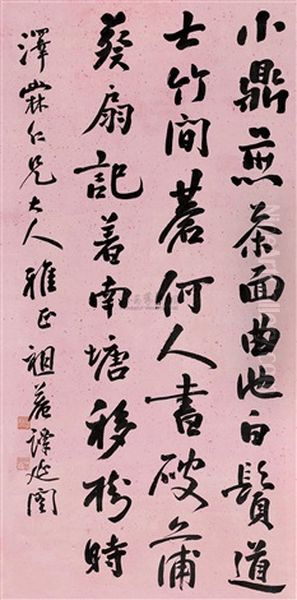 小鼎煎茶面曲池白鬚道
士竹間碁何人書破蒲
葵扇記着南塘移樹時
澤霖仁兄大人雅正 祖菴譚延闓